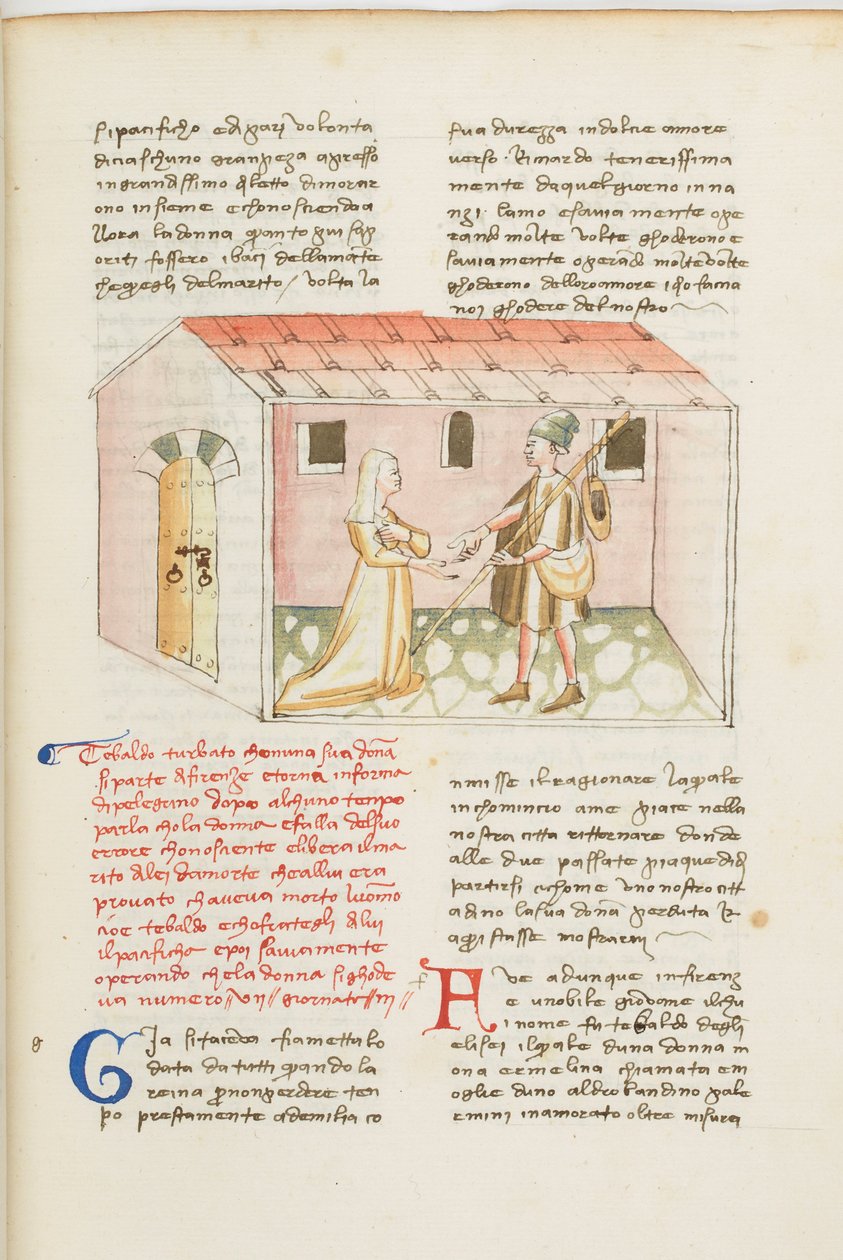 si pacificho ed pari volonta
di ciaschuno gran peza apresso
in grandissimo diletto dimorar
ono insieme e chonosciendo a
llora la donna quanto piu sap
oriti fossero i baci dellamante
che quegli del marito / volta la
sua durezza in dolcie amore
verso Ricardo tenerissima
mente da quel giorno inna
nzi lamo e saviamente ope
rando molte volte ghoderono e
saviamente operado molte volte
ghoderono delloro amore idio faccia
noi ghodere del nostro
Tebaldo turbato chon una sua dona
si parte di firenze e torna in forma
di pelegrino dopo alchuno tenpo
parla chola donna e falla del suo
errore chonosciente e libera il ma
rito di lei da morte che allui era
provato ch aveva morto luomo
cioe tebaldo e cho frategli di lui
il pacificha e poi saviamente
operando chela donna si ghode
va numero // vii // giornata // iii //
Gia si taceva fiametta lo
data da tutti quando la
reina per non perdere ten
po prestamente ad emilia co
nmisse il ragionare la quale
inchomincio a me piace nella
nostra citta rittornare donde
alle due passate piaque di di
partirsi e chome uno nostro citt
adino la sua dona perduta R
aquistasse mostrarvi
g
Ave adunque in firenz
e uno bile giovane il chu
i nome fu tebaldo degli
elisei il quale duna donna m
ona ermelina chiamata e m
oglie duno aldrobandino pale
rmini inamorato oltre misura